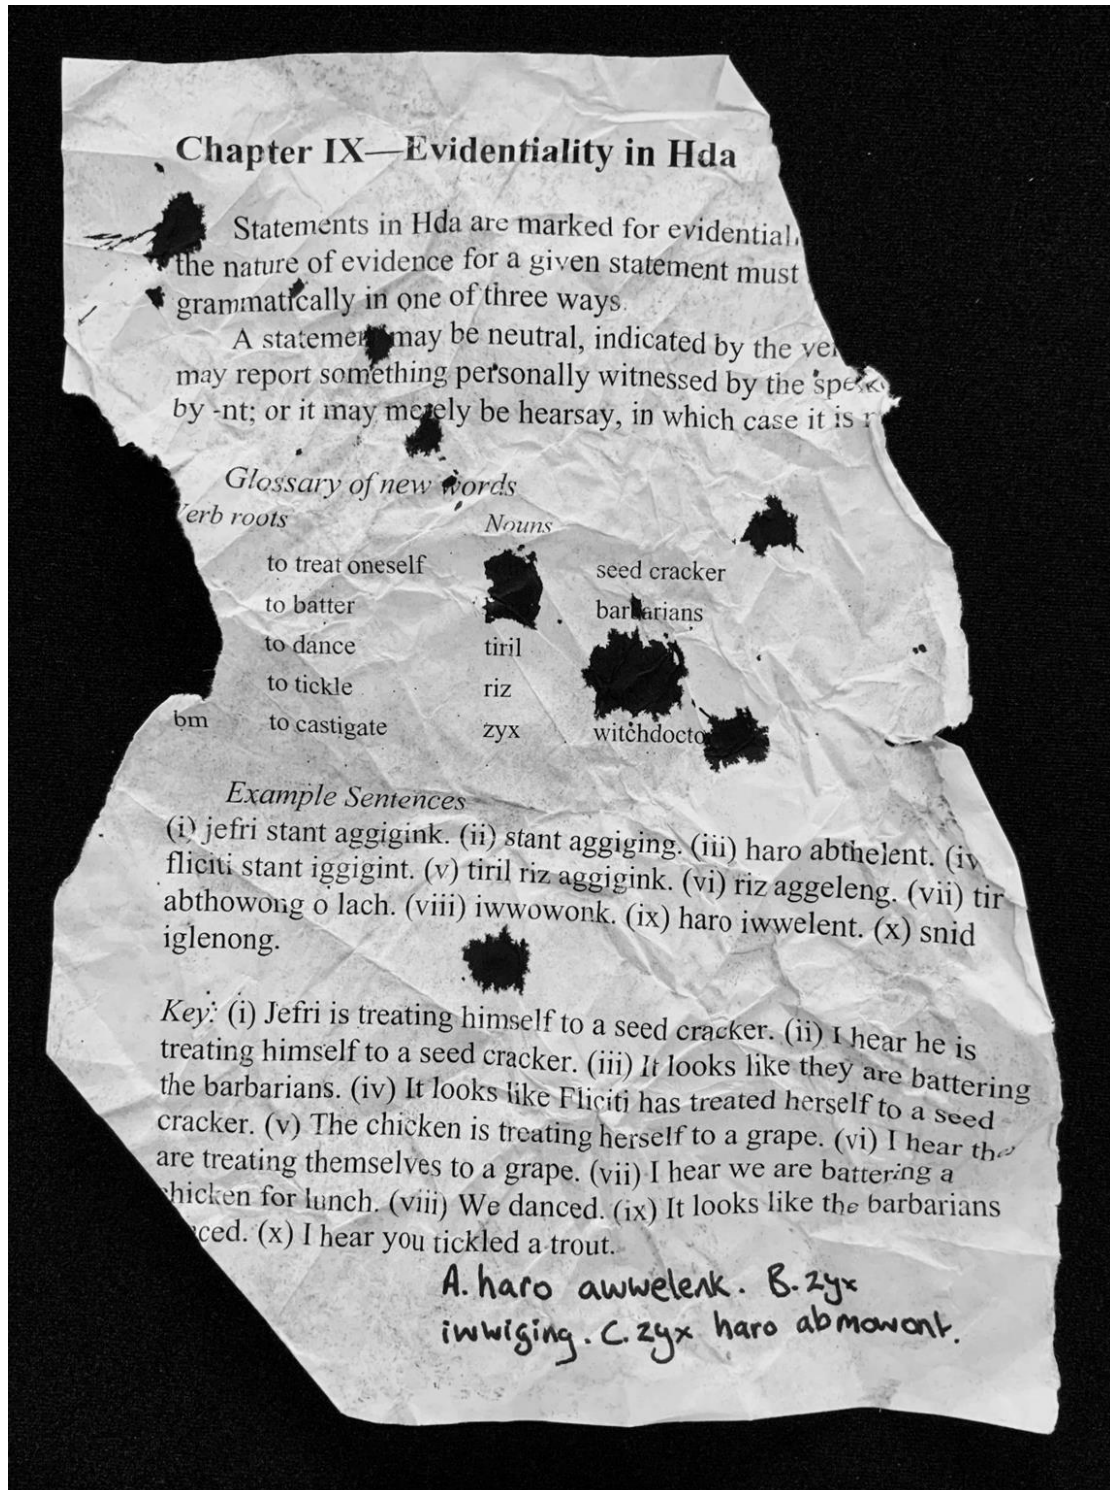 Chapter IX—Evidentiality in Hda
Statements in Hda are marked for
the nature of evidence for a given statement must
grammatically in one of three ways.
A may be neutral, indicated by the
may report something personally witnessed by the
by -nt; or it may merely be hearsay, in which case it is
Glossary of new words
Verb roots Nouns
to treat oneself seed cracker
to batter barbarians
to dance tiril
to tickle riz
bm to castigate zyx
Example Sentences
(i) jefri stant aggigink. (ii) stant aggiging. (iii) haro abthelent. (iv
fliciti stant iggigint. (v) tiril riz aggigink. (vi) riz aggeleng. (vii) tir
abthowong o lach. (viii) iwwowonk. (ix) haro iwwelent. (x) snid
iglenong.
Key: (i) Jefri is treating himself to a seed cracker. (ii) I hear he is
treating himself to a seed cracker. (iii) It looks like they are battering
the barbarians. (iv) It looks like Fliciti has treated herself to a seed
cracker. (v) The chicken is treating herself to a grape. (vi) I hear
are treating themselves to a grape. (vii) I hear we are battering a
chicken for lunch. (viii) We danced. (ix) It looks like the barbarians
(x) I hear you tickled a trout.
A. haro awwelenk. B. zyx
iwwiging. C. zyx haro abmowont.